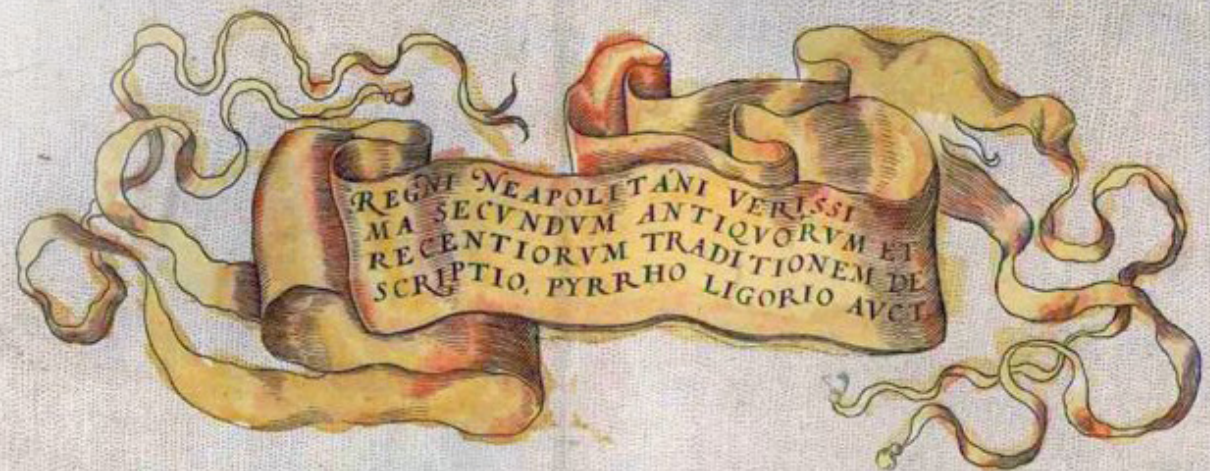 REGNI NEAPOLITANI VERISSI
MA SECVNDVM ANTIQVORVM ET
RECENTIORVM TRADITIONEM DE
SCRIPTIO, PYRRHO LIGORIO AVCT.